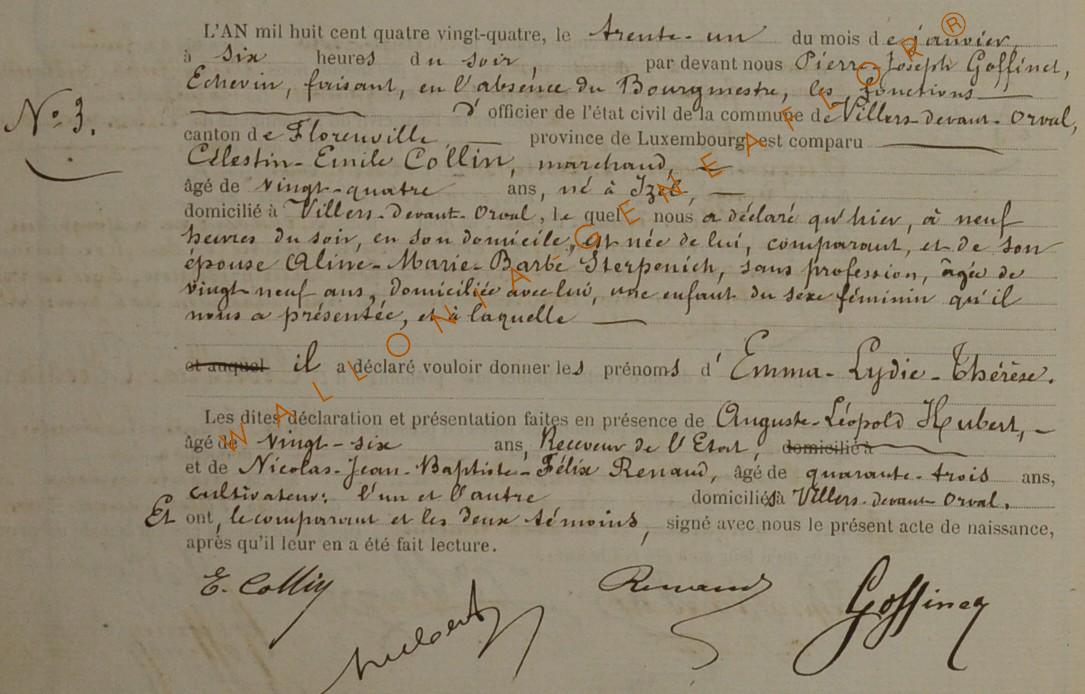 L'AN mil huit cent quatre vingt-quatre, le trente-un du mois de janvier,
à six heures du soir, par devant nous Pierre-Joseph Goffinet,
Echevin, faisant, en l'absence du Bourgmestre, les fonctions
d'officier de l'état civil de la commune de Villers-devant-Orval,
N° 3.
canton de Florenville province de Luxembourg est comparu
Célestin-Emile Collin, marchand,
âgé de vingt-quatre ans, né à Izel,
domicilié à Villers-devant-Orval, le quel nous a déclaré qu'hier, à neuf
heures du soir, en son domicile, est née de lui, comparant, et de son
épouse Aline-Marie-Barbe Sterpenich, sans profession, âgée de
vingt neuf ans, domiciliée avec lui, une enfant du sexe féminin qu'il
nous a présentée, et à laquelle
et auquel il a déclaré vouloir donner les prénoms d'Emma-Lydie-Thérèse.
Les dites déclaration et présentation faites en présence de Auguste-Léopold Hubert,
âgé de vingt-six ans, Receveur de l'Etat, domicilié à
et de Nicolas-Jean-Baptiste-Félix Renaud, âgé de quarante-trois ans,
cultivateur; l'un et l'autre domiciliés à Villers-devant-Orval.
Et ont, le comparant et les deux témoins, signé avec nous le présent acte de naissance,
après qu'il leur en a été fait lecture.
E. Collin Hubert Renaud Goffinet
WALLONIA-GENEAFLOR®